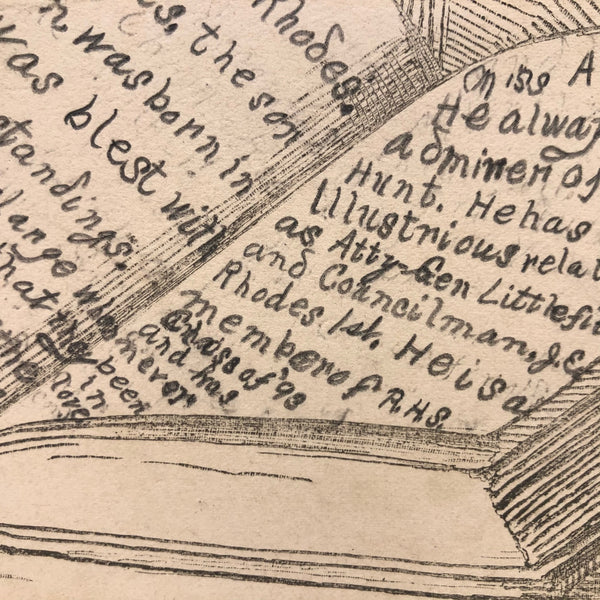 Rhodes.
s, the son
n was born in
was blest with
standings.
that they
been
in
the long
Miss A
He alway
admirer of
Hunt. He has
Illustrious relat
as Atty-Gen Littlefie
and Councilman, J.C.
Rhodes Ist. He is a
member of R.H.S.
Class of '93
and has
never